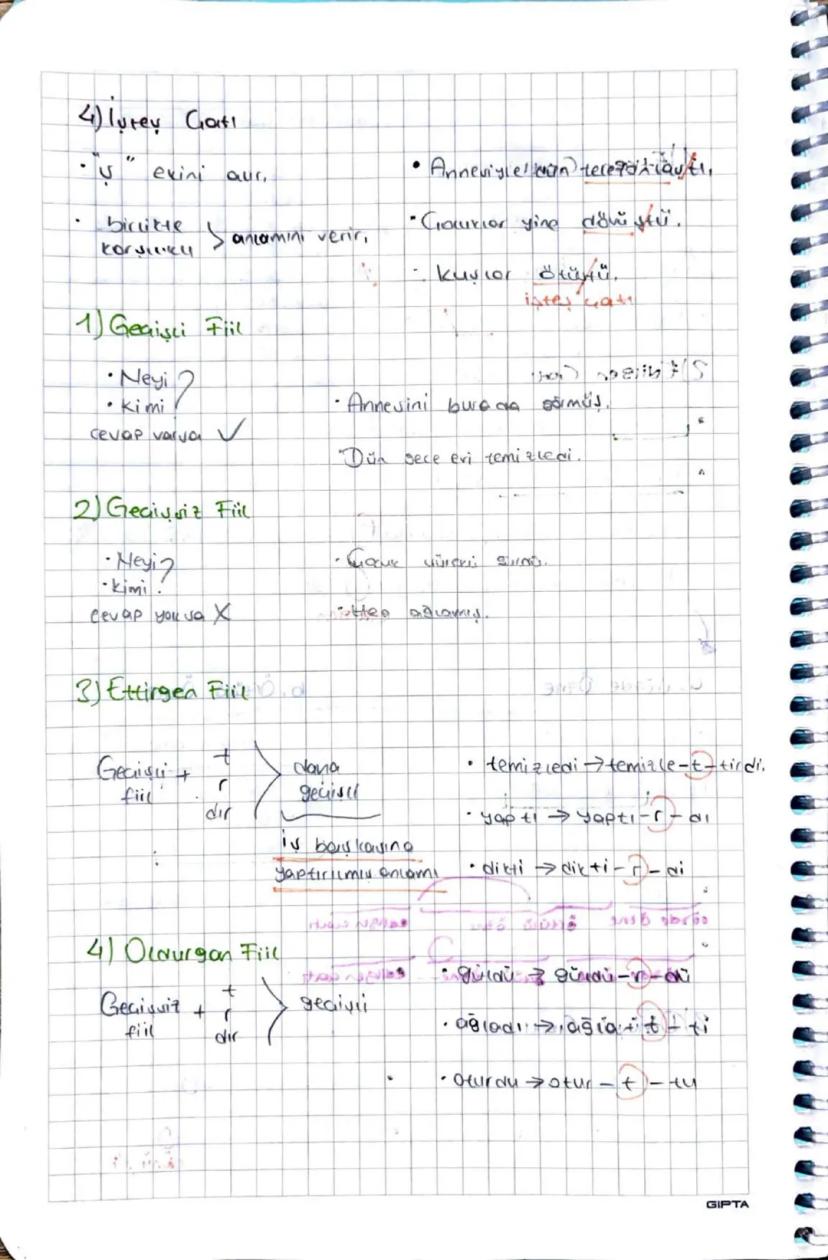 4) İşteş Çatı
• "ş" ekini alır.
• birlikte
karşılıklı > anlamını verir.
• Annesiyle dün telefonlaştı.
• Çocuklar yine dövüştü.
• Kuşlar ötüştü.
işteş çatı
1) Geçişli Fiil
• Neyi ?
• Kimi
cevap varsa ✓
• Annesini burada görmüş.
• Dün gece evi temizledi.
2) Geçişsiz Fiil
• Neyi ?
• Kimi
cevap yoksa X
• Çocuk
ağlamış.
3) Ettirgen Fiil
Geçişli fiil + t r dır > daha geçişli
iş başkasına
yaptırılmış anlamı
• temizledi → temizle-t-tirdi.
• yaptı → yaptı-r-dı
• dikti → dikti-r-di
4) Oldurgan Fiil
Geçişsiz fiil + t r dır > geçişli
• güldü → güldü-r-dü
• ağladı → ağla-t-tı
• oturdu → otur-t-tu
GIPTA